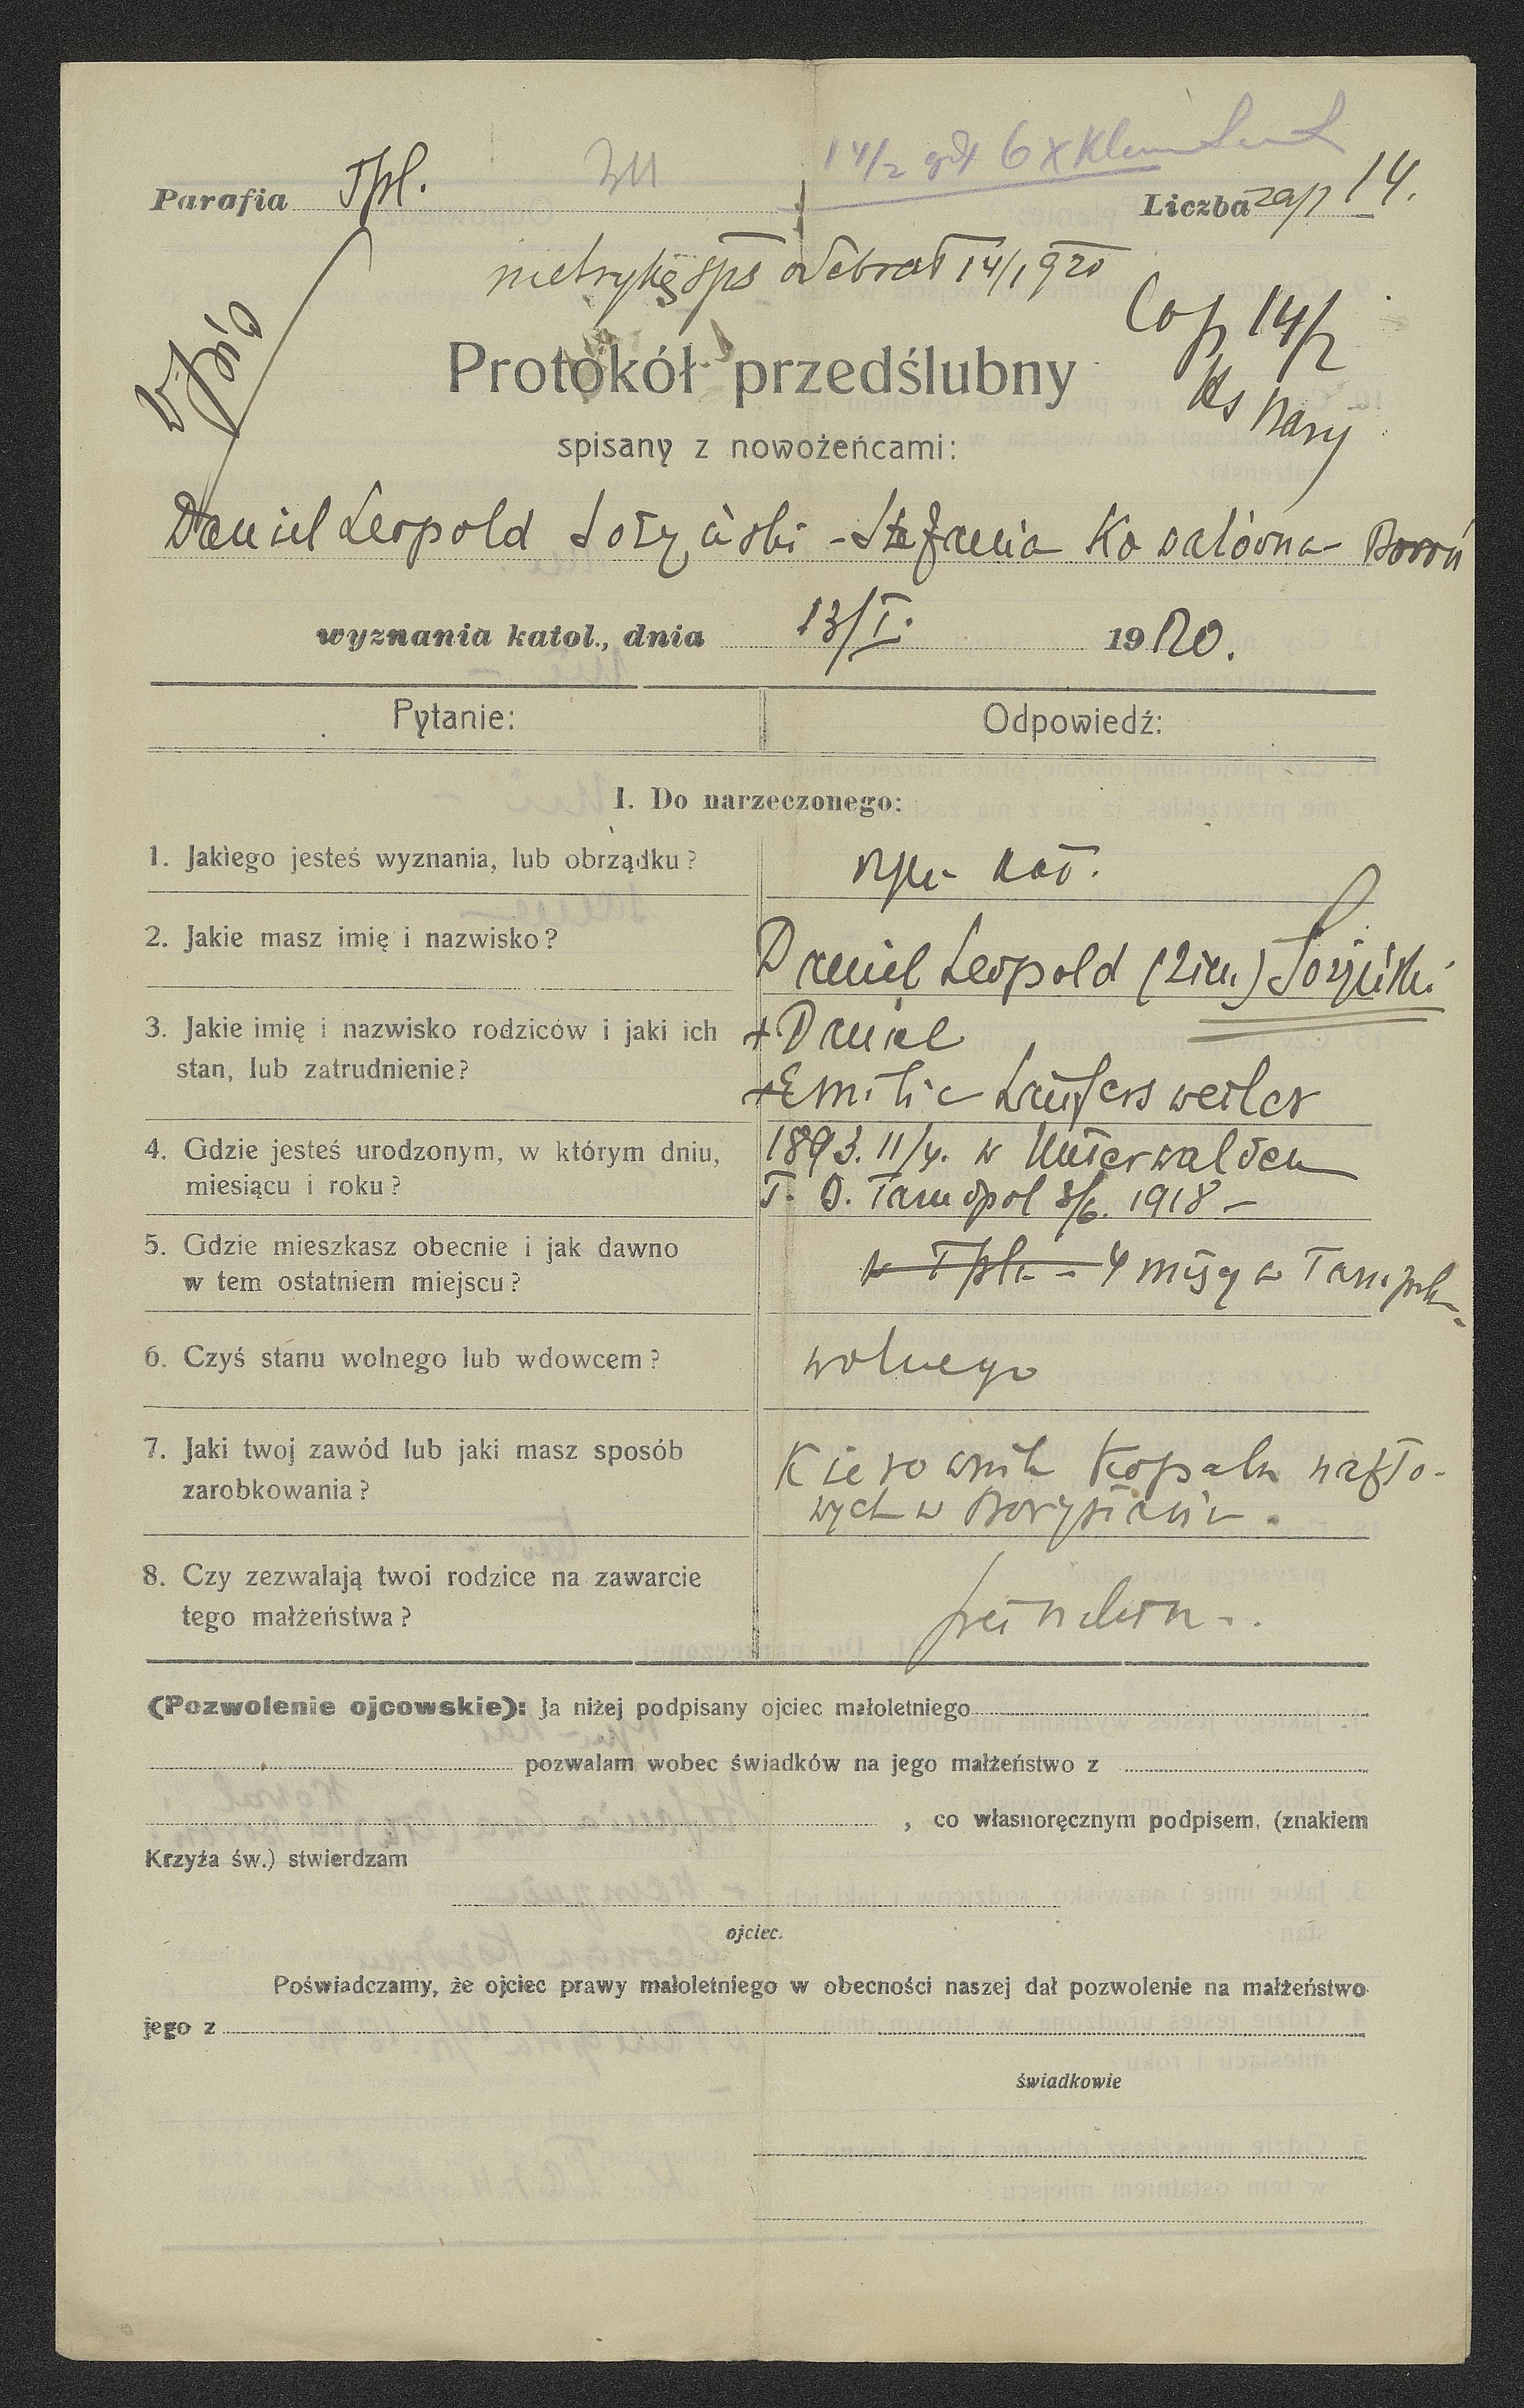 14/2 6 X
Parafia Tpl. Liczba zap 14.
metrykę odebrał 14/1 920
Cop 14/2
Ks
Protokół przedślubny
spisany z nowożeńcami:
Daniel Leopold Łożyński - Stefania Kowalówna Boroń
wyznania katol., dnia 13/I. 1920.
Pytanie: Odpowiedź:
I. Do narzeczonego:
1. Jakiego jesteś wyznania, lub obrządku? rzym kat.
2. Jakie masz imię i nazwisko? Daniel Leopold (2im.) Łożyński
3. Jakie imię i nazwisko rodziców i jaki ich + Daniel
stan, lub zatrudnienie? + Emilia Laufersweiler
4. Gdzie jesteś urodzonym, w którym dniu, 1893. 11/4. w Unterwalden
miesiącu i roku? T. O. Tarnopol 3/6. 1918 -
5. Gdzie mieszkasz obecnie i jak dawno w Tplu - 4 mies w
w tem ostatniem miejscu?
6. Czyś stanu wolnego lub wdowcem? wolnego
7. Jaki twoj zawód lub jaki masz sposób Kierownik Kopalń nafto-
zarobkowania? wych w Borysławiu.
8. Czy zezwalają twoi rodzice na zawarcie
tego małżeństwa?
(Pozwolenie ojcowskie): Ja niżej podpisany ojciec małoletniego
pozwalam wobec świadków na jego małżeństwo z
, co własnoręcznym podpisem, (znakiem
Krzyża św.) stwierdzam
ojciec.
Poświadczamy, że ojciec prawy małoletniego w obecności naszej dał pozwolenie na małżeństwo
jego z
świadkowie